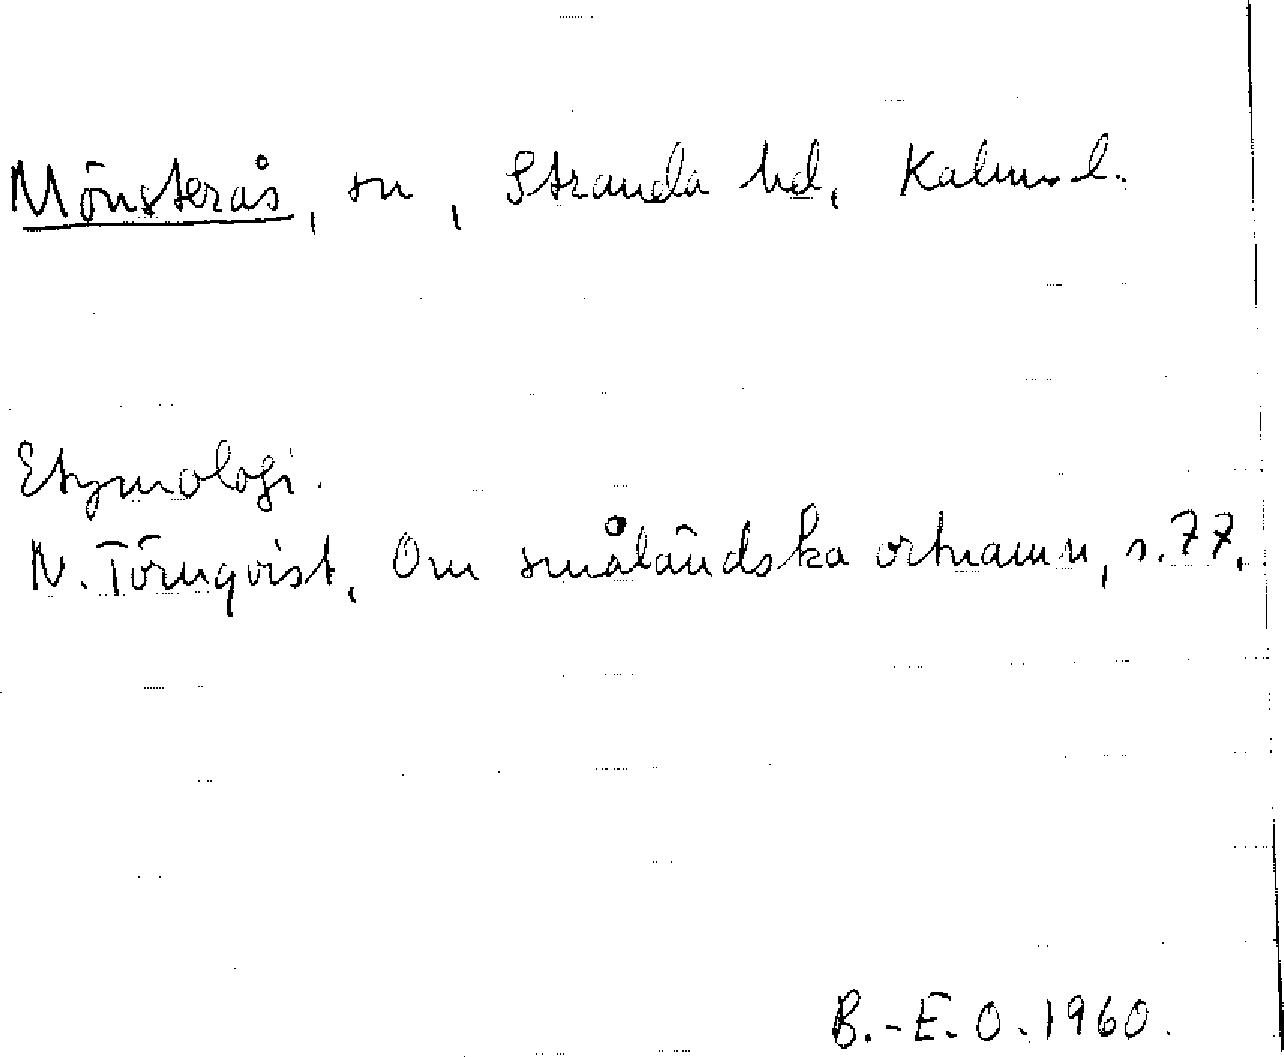 Mönsterås, sn, Stranda hd, Kalm. l.
Etymologi.
N. Törnqvist, Om småländska ortnamn, s. 77.
B.-E. O. 1960.